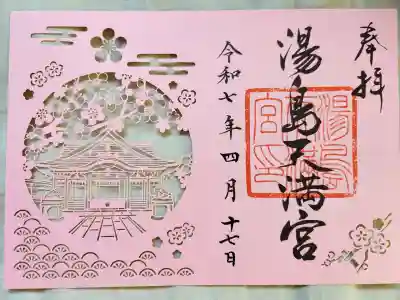 奉拝
湯島天満宮
令和七年四月十七日